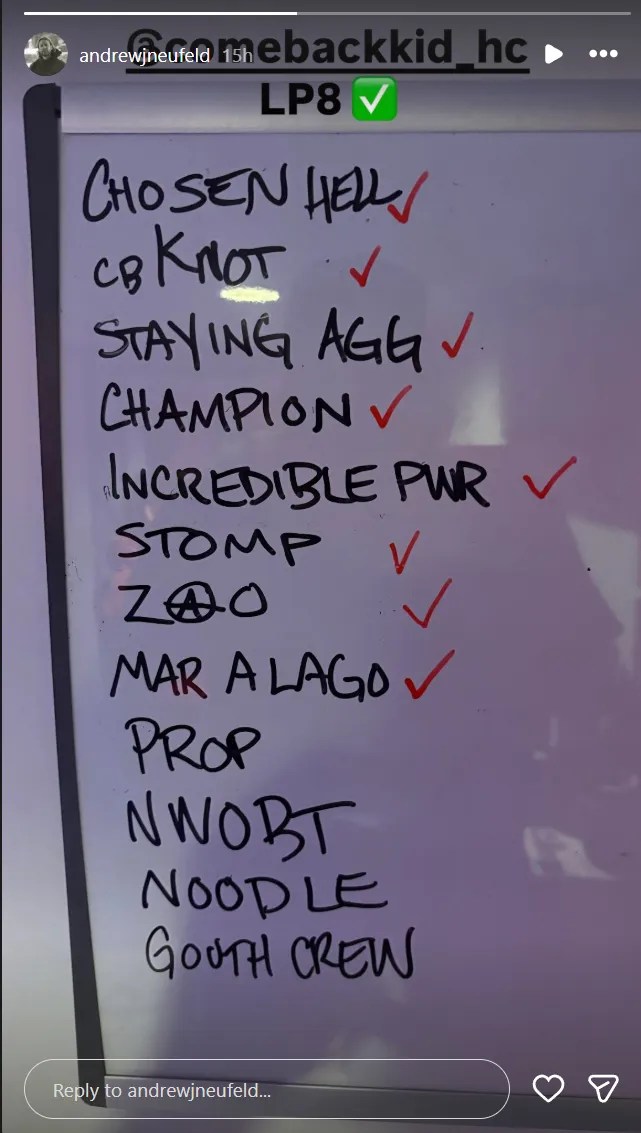 @comebackkid_hc
andrewjneufeld 15h
LP8 ✅
CHOSEN HELL ✓
CB KNOT ✓
STAYING AGG ✓
CHAMPION ✓
INCREDIBLE PWR ✓
STOMP ✓
ZAO ✓
MAR A LAGO ✓
PROP
NWOBT
NOODLE
GOUTH CREW
Reply to andrewjneufeld...